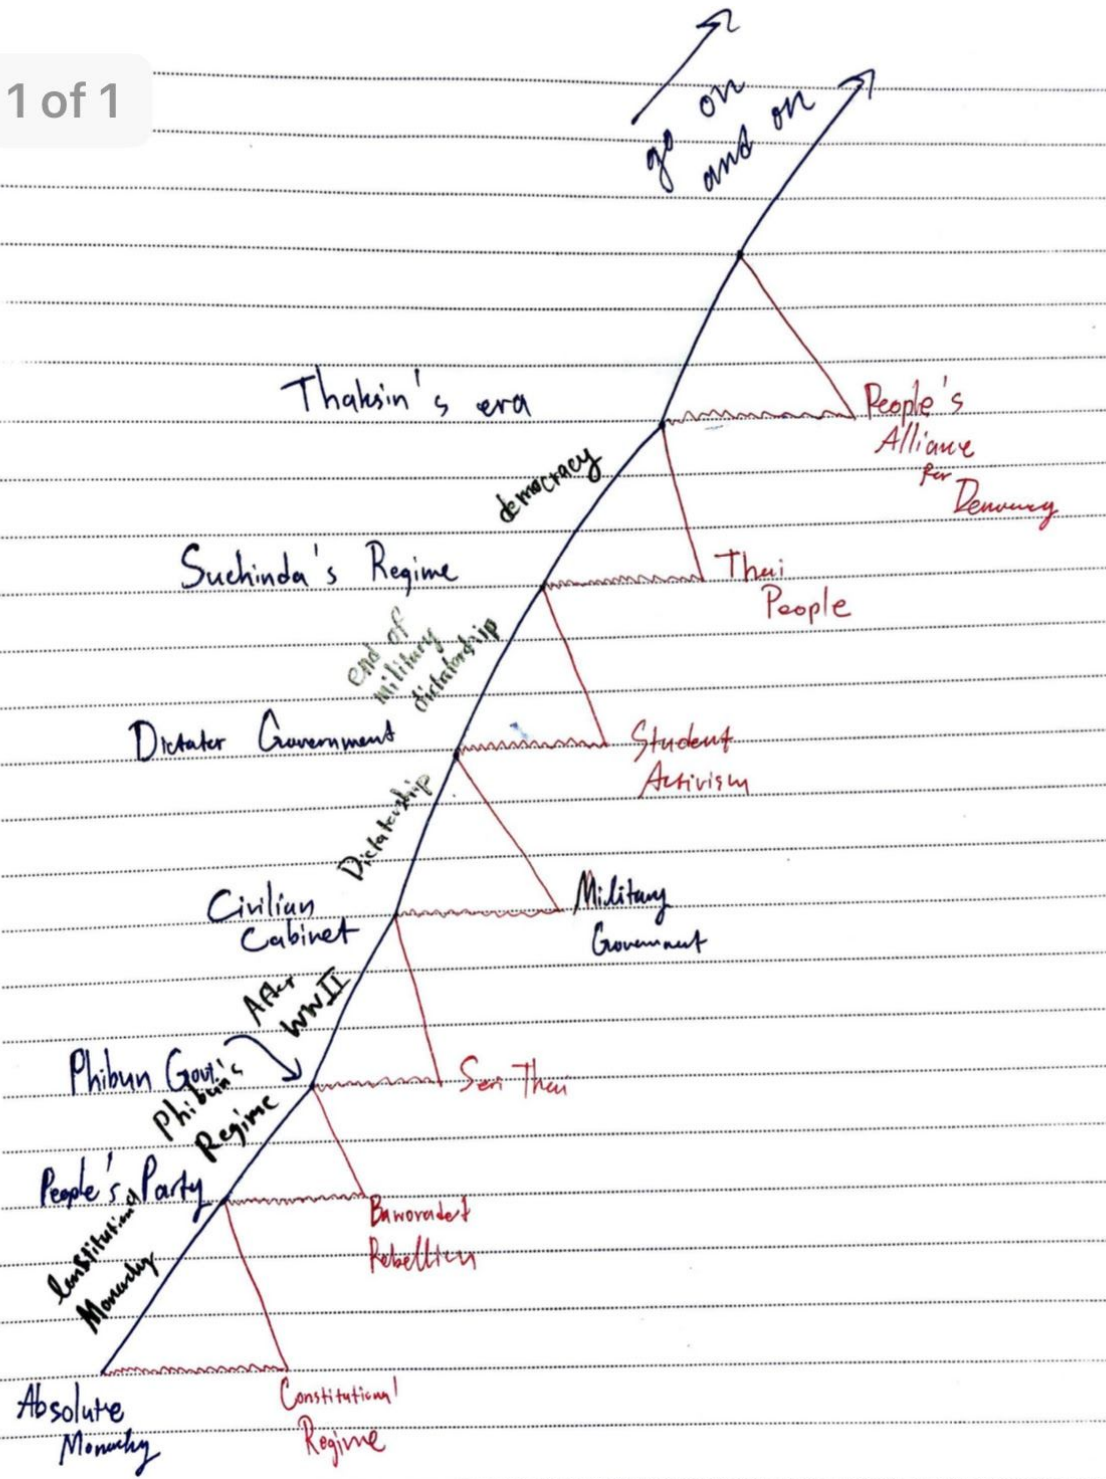 1 of 1
go on
and on
Thaksin's era
People's
Alliance
for
democracy
Suchinda's Regime
Thai
People
end of
military
dictatorship
Dictator Government
Student
Activism
Dictatorship
Civilian
Cabinet
Military
Government
After
WWII
Phibun Govt.
Seri Thai
Phibun's
Regime
People's Party
Baworadet
Rebellion
Constitutional
Monarchy
Absolute
Monarchy
Constitutional
Regime